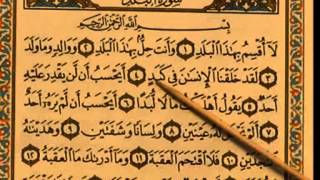 سورة البلد
بِسْمِ اللَّهِ الرَّحْمَٰنِ الرَّحِيمِ
لَا أُقْسِمُ بِهَٰذَا الْبَلَدِ ١ وَأَنتَ حِلٌّ بِهَٰذَا الْبَلَدِ ٢ وَوَالِدٍ وَمَا وَلَدَ
٣ لَقَدْ خَلَقْنَا الْإِنسَانَ فِي كَبَدٍ ٤ أَيَحْسَبُ أَن لَّن يَقْدِرَ عَلَيْهِ
أَحَدٌ ٥ يَقُولُ أَهْلَكْتُ مَالًا لُّبَدًا ٦ أَيَحْسَبُ أَن لَّمْ يَرَهُ أَحَدٌ
٧ أَلَمْ نَجْعَل لَّهُ عَيْنَيْنِ ٨ وَلِسَانًا وَشَفَتَيْنِ ٩ وَهَدَيْنَاهُ
النَّجْدَيْنِ ١٠ فَلَا اقْتَحَمَ الْعَقَبَةَ ١١ وَمَا أَدْرَاكَ مَا الْعَقَبَةُ ١٢